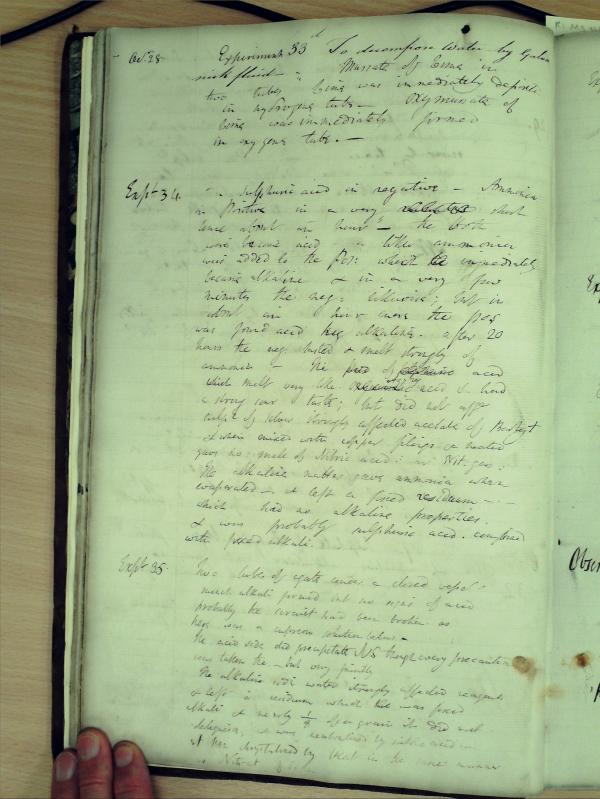 Oct. 28 Experiment 33d To decompose Water by Galva
nick fluid — Muriate of lime in
two tubes lime was immediately deposited
in hydrogene tube — Oxymuriate of
lime was immediately formed
in oxygene tube. —
Expt. 34. sulphuric acid in negative — Ammonia
in Positive in a very short
time about an hour — the both
were become acid a little ammonia
was added to the Pos: which immediately
became alkaline & in a very few
minutes the neg: likewise; but in
about an hour more the pos
was found acid neg alkaline. after 20
hours the neg. tasted & smelt strongly of
ammonia — The of acid
which smelt very like acid & had
a strong sour taste; but did not
of silver strongly affected acetate of Barytes
& when mixed with copper filings & heated
gave no smell of Nitric acid: or Nit: gas:
The alkaline matter gave ammonia when
evaporated — & left a fixed residuum —
which had no alkaline properties.
& was probably sulphuric acid. combined
with fixed alkali.
Expt. 35. Two tubes of agate under a closed vessel
much alkali formed but no signs of acid
probably the circuit had been broken as
here was a cupreous solution below —
the acid side did precipitate NS though every precaution
was taken the — but very faintly
The alkaline water strongly affected reagents
& left a residuum which was fixed
alkali & nearly 1/ of a grain it did not
deliquesce, it was neutralized by nitric acid
& by heat in the same manner
as Nitrat
Obser